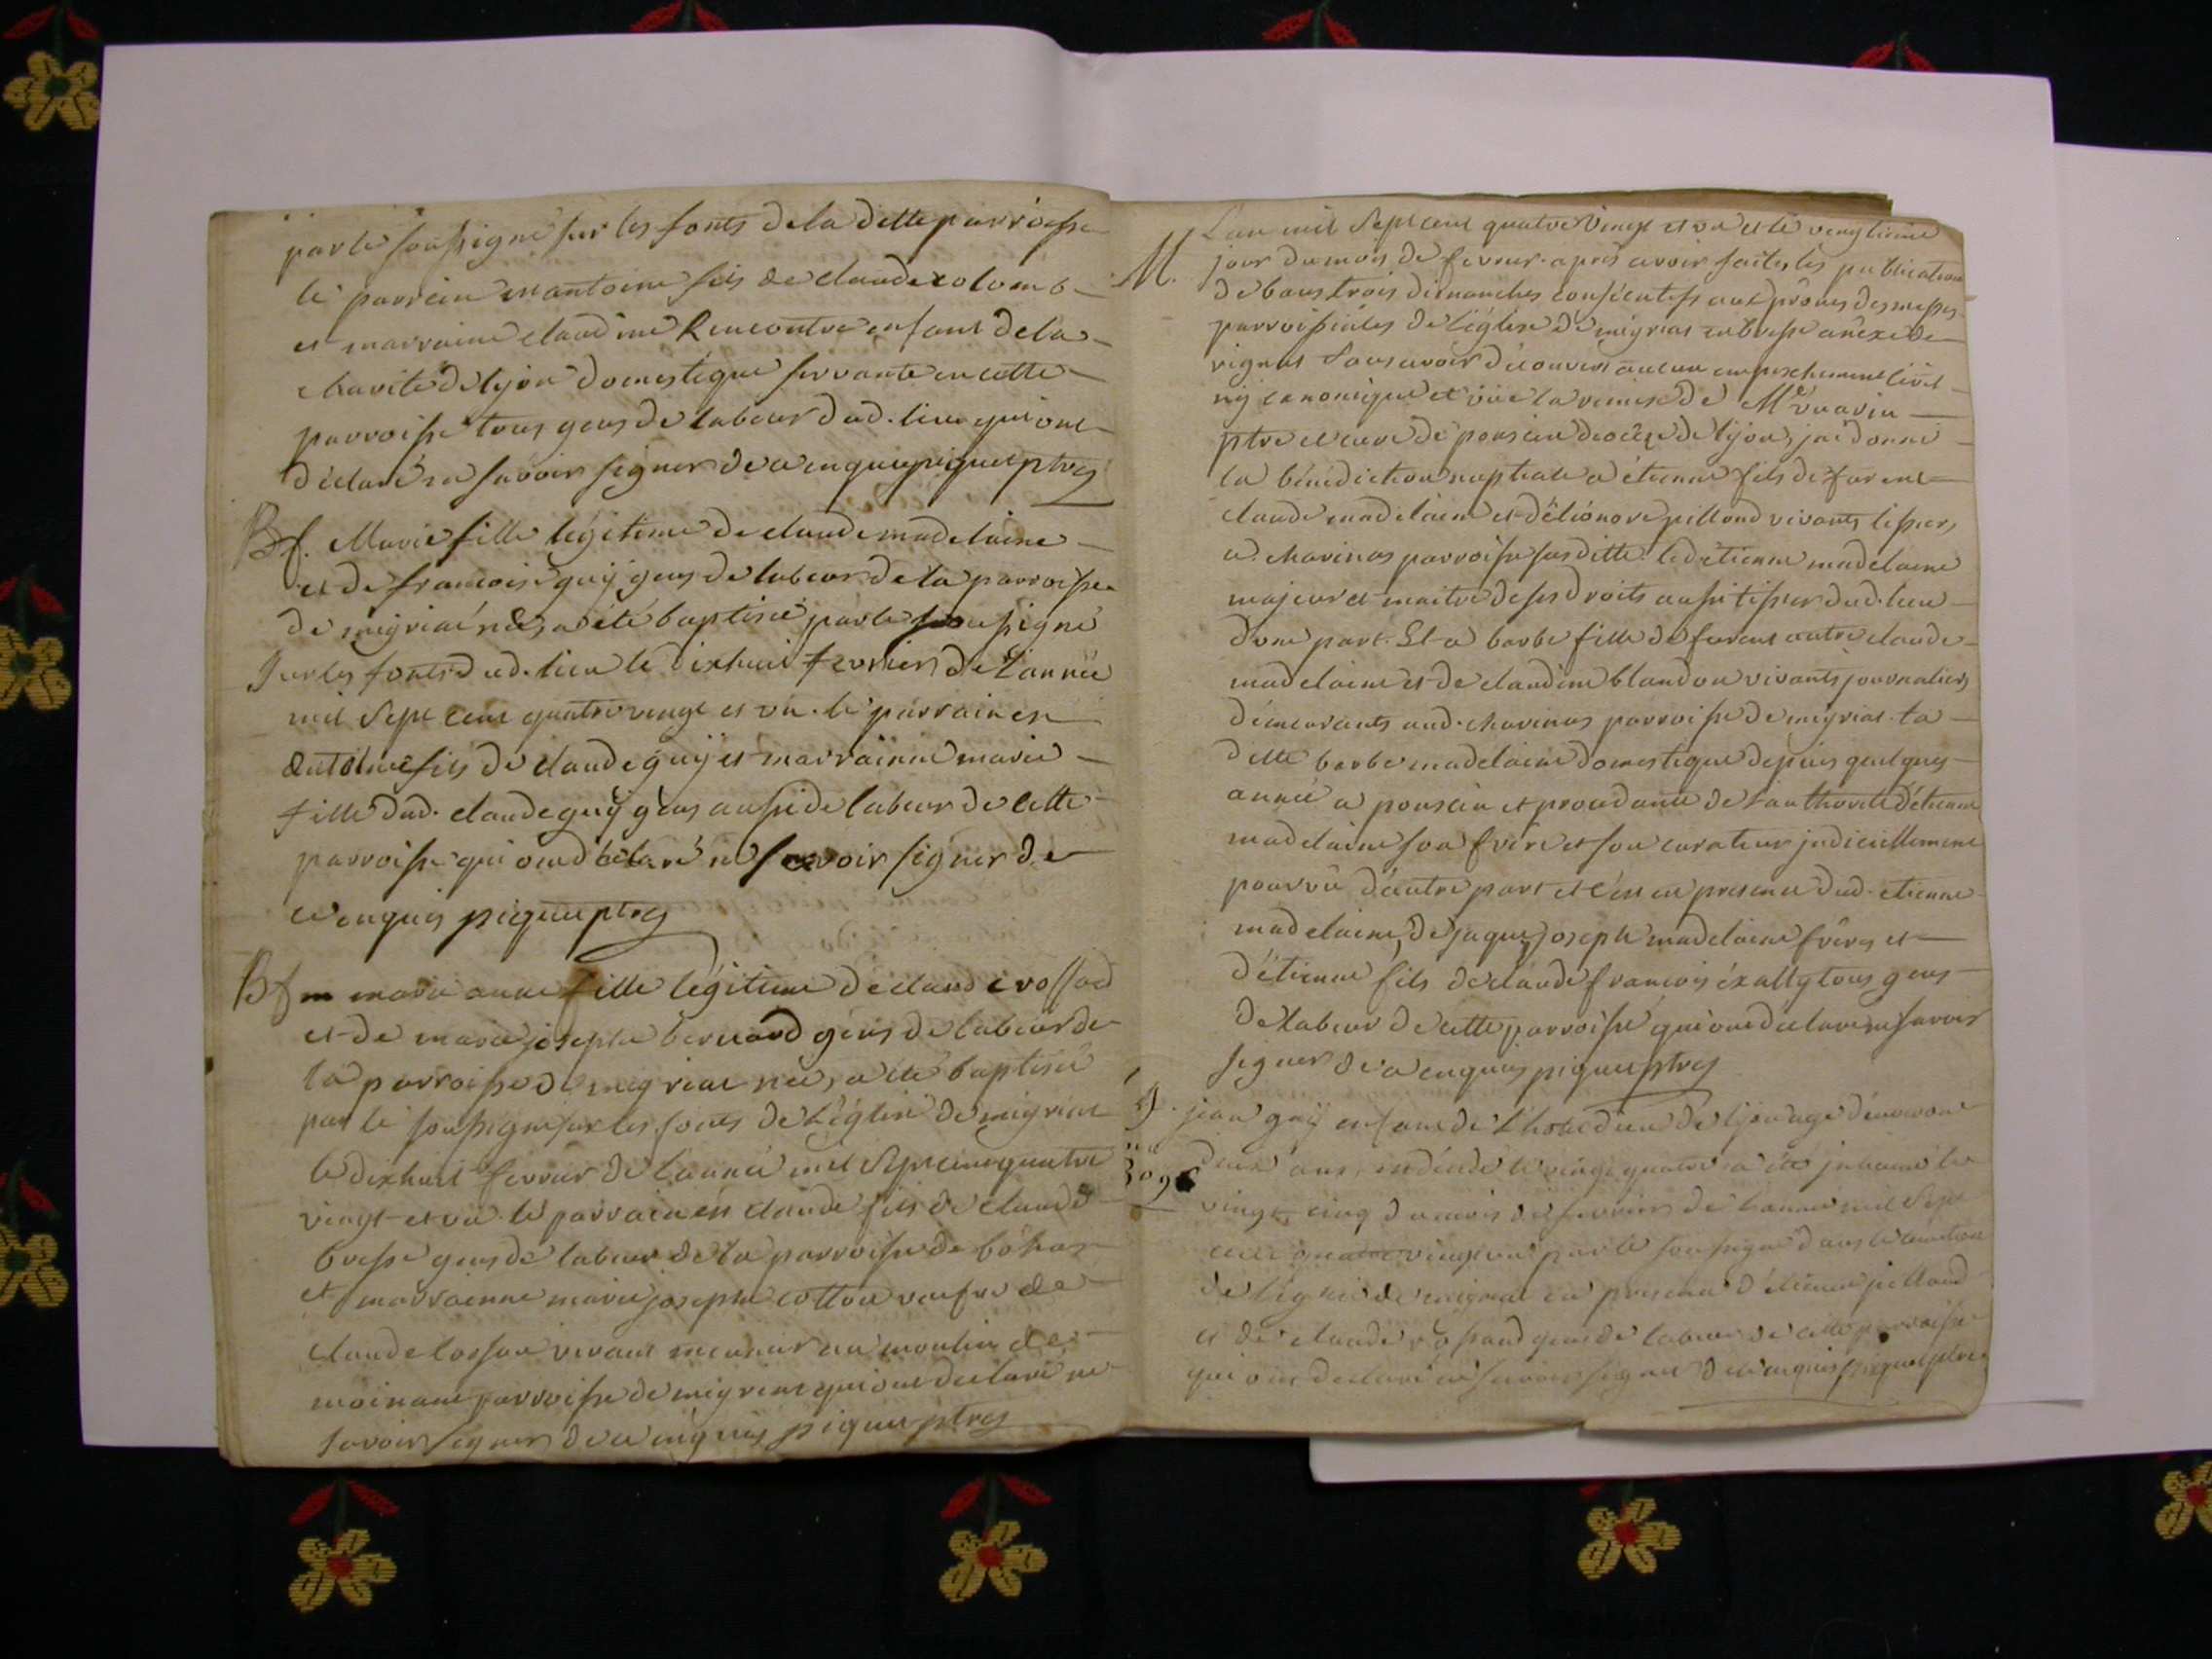 par le soussigné sur les fonts de la ditte parroisse
le parrain est antoine fils de claude colomb
et marraine claudine Rencontre enfant de la
charité de lyon domestique servante en cette
parroisse tous gens de labeur dud. lieu qui ont
déclaré ne savoir signer de ce enquis piquet ptre
Bf. Marie fille légitime de claude madelaine
et de francoise guÿ gens de labeur de la parroisse
de meigriat née, a été baptisée par le soussigné
sur les fonts dud. lieu le dixhuit fevrier de l'année
mil sept cent quatre vingt et un. le parrain est
antoine fils de claude guÿ et marrainne marie
fille dud. claude guÿ gens aussi de labeur de cette
parroisse qui ont déclaré ne scavoir signer de
ce enquis piquet ptre
Bf marie anne fille légitime de claude rossad
et de marie josephe bernard gens de labeur de
la parroisse de meigriat née, a été baptisée
par le soussigné sur les fonts de l'église de meigriat
le dixhuit fevrier de l'année mil sept cent quatre
vingt et un. le parrain est claude fils de claude
bresse gens de labeur de la parroisse de bohas
et marrainne marie josephe cotton veufve de
claude vivant meunier au moulin de
parroisse de meigriat qui ont declaré ne
savoir signer de ce enquis piquet ptre
M. L'an mil sept cent quatre vingt et un et le vengtieme
jour du mois de fevrier. apres avoir faites les publications
de bans trois dimanches consécutifs aux prônes des messes
parroissiales de l'église de meigriat en bresse anexe de
vignat sans avoir découvert aucun empeschement civil
ny canonique et vüe la remise de Mr
ptre et curé de poncin diocèze de lÿon, jai donné
la bénédiction nuptiale a étienne fils de furent
claude madelaine et d'éléonore pilland vivants tissiers
a charinas parroisse susditte. led etienne madelaine
majeur et maitre de ses droits aussi tissier dud. lieu
d'une part. Et a barbe fille de furent autre claude
madelaine et de claudine blandon vivants journaliers
demeurants aud. charinas parroisse de meigriat. la
ditte barbe madelaine domestique depuis quelques
année a poncin et procédante de l'authorité d'étienne
madelaine son frère et son curateur judiciellement
pourvû d'autre part et c'est en presence dud. etienne
madelaine, de jaques joseph madelaine frères et
d'étienne fils de claude francois tous gens
de labeur de cette parroisse qui ont declaré ne savoir
signer de ce enquis piquet ptre
S. jean guÿ enfant de l'hotel dieu de lÿon agé d'environ
deux ans, est décédé le vingt quatre a été inhumé le
3096
vingt cinq du mois de fevrier de l'année mil sept
cent quatre vingt un par le soussigné dans le cimetiere
de l'église de meigriat en presence d'étienne pilland
et de claude rossand gens de labeur de cette parroisse
qui ont declaré ne savoir signer de ce enquis piquet ptre